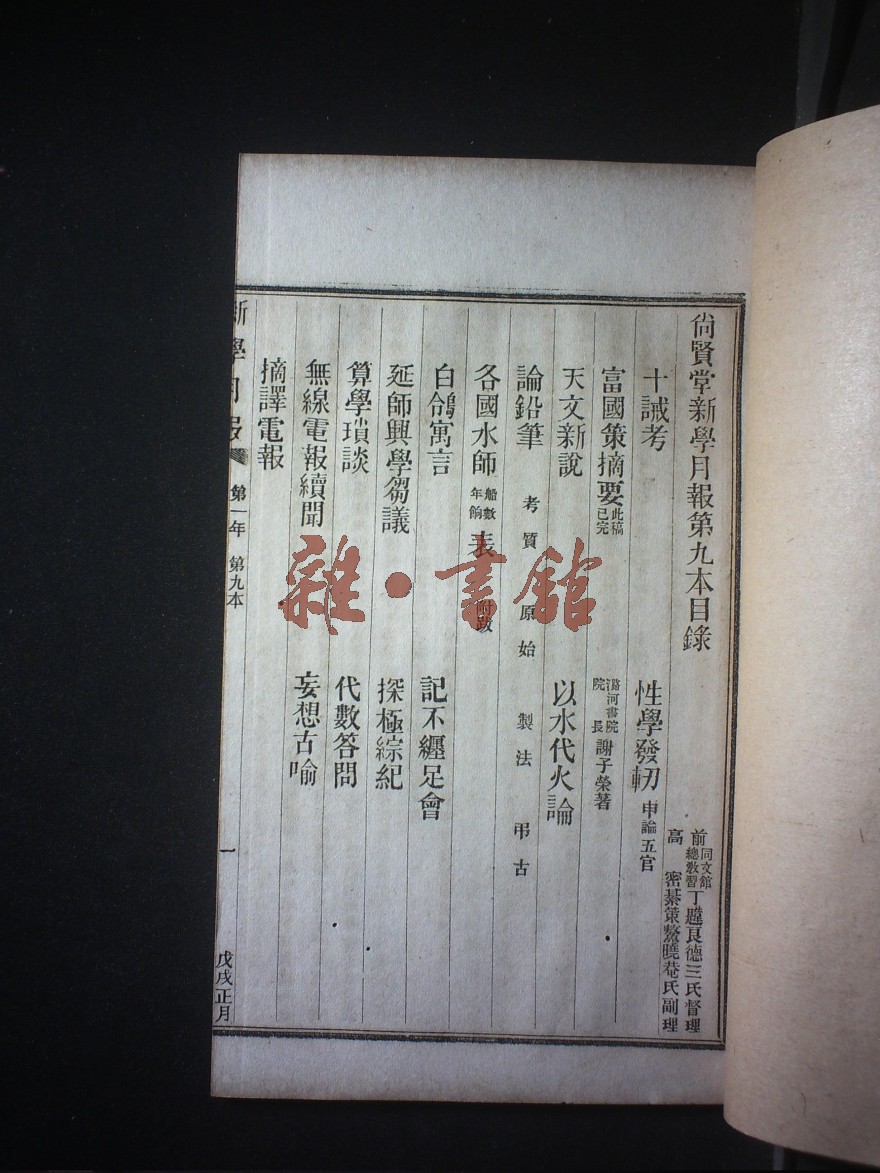 尙賢堂新學月報第九本目錄
前同文館總敎習丁韙良德三氏督理
高 密綦策鰲曉菴氏副理
十誡考 性學發軔 申論五官
富國策摘要 此稿已完 潞河書院院長謝子榮著
天文新說 以水代火論
論鉛筆 考質 原始 製法 弔古
各國水師船數年餉表
白鴿寓言 記不纏足會
延師興學芻議 探極綜紀
算學瑣談 代數答問
無線電報續聞 妄想古喻
摘譯電報
新學月報 第一年 第九本 一 戊戌正月
雜·書館